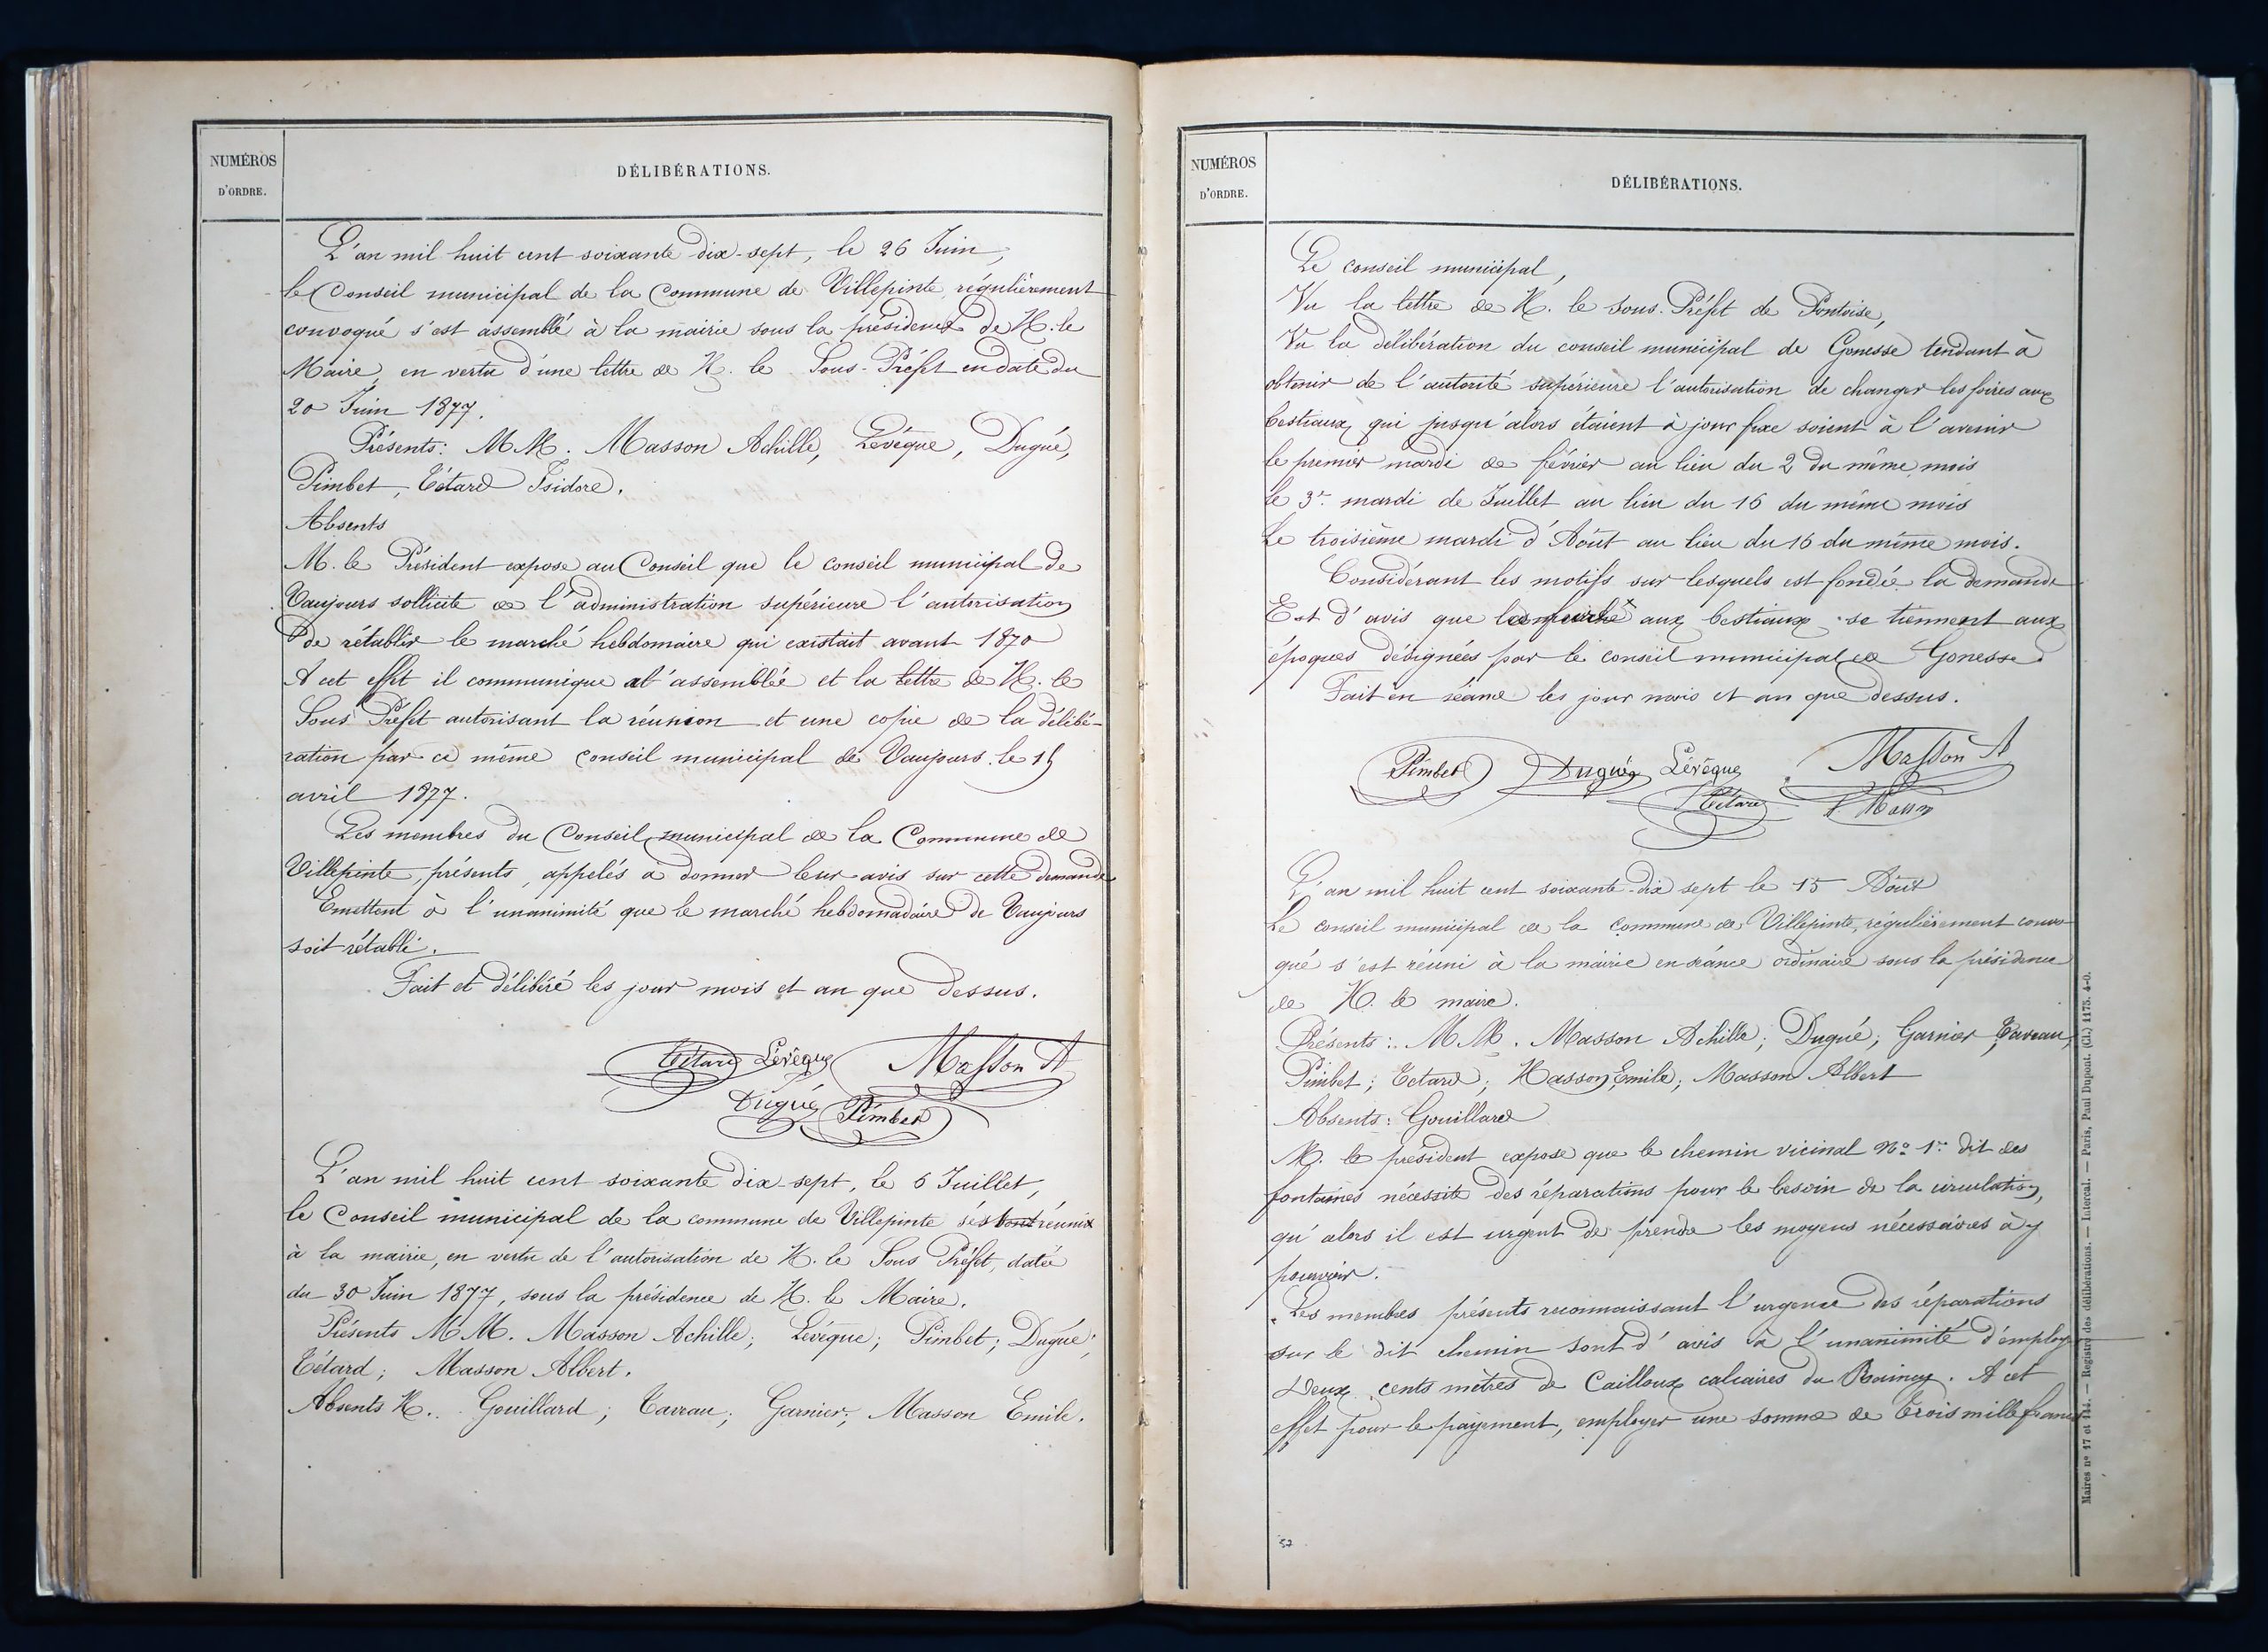 NUMÉROS
D'ORDRE.
DÉLIBÉRATIONS.
L'an mil huit cent soixante dix-sept, le 26 Juin,
le Conseil municipal de la Commune de Villepinte, régulièrement
convoqué s'est assemblé à la mairie sous la présidence de M. le
Maire, en vertu d'une lettre de M. le Sous-Préfet en date du
20 Juin 1877.
Présents: MM. Masson Achille, Levêque, Dugué,
Pimbet, Tétard Isidore.
Absents
M. le Président expose au Conseil que le conseil municipal de
Vaujours sollicite de l'administration supérieure l'autorisation
de rétablir le marché hebdomaire qui existait avant 1870
A cet effet il communique a l'assemblée et la lettre de M. le
Sous Préfet autorisant la réunion et une copie de la délibé-
ration par ce même conseil municipal de Vaujours le 15
avril 1877.
Les membres du Conseil municipal de la Commune de
Villepinte, présents, appelés à donner leur avis sur cette demande
Emettent à l'unanimité que le marché hebdomadaire de Vaujours
soit rétabli.
Fait et délibéré les jour mois et an que dessus.
Tétard Levêque Masson A
Dugué Pimbet
L'an mil huit cent soixante dix-sept, le 6 Juillet,
le Conseil municipal de la commune de Villepinte s'est réunis
à la mairie, en vertu de l'autorisation de M. le Sous Préfet, datée
du 30 Juin 1877, sous la présidence de M. le Maire.
Présents MM. Masson Achille; Levêque; Pimbet; Dugué;
Tétard; Masson Albert.
Absents M. Gouillard; Taveau; Garnier; Masson Emile.
NUMÉROS
D'ORDRE.
DÉLIBÉRATIONS.
Le conseil municipal,
Vu la lettre de M. le Sous-Préfet de Pontoise,
Vu la délibération du conseil municipal de Gonesse tendant à
obtenir de l'autorité supérieure l'autorisation de changer les foires aux
bestiaux qui jusqu'alors étaient à jour fixe soient à l'avenir
le premier mardi de février au lieu du 2 du même mois
Le 3e mardi de Juillet au lieu du 16 du même mois
Le troisième mardi d'Août au lieu du 16 du même mois.
Considérant les motifs sur lesquels est fondée la demande
Est d'avis que les aux bestiaux se tiennent aux
époques désignées par le conseil municipal de Gonesse
Fait en séance les jour mois et an que dessus.
Pimbet Dugué Levêque Masson A
Tétard A Masson
L'an mil huit cent soixante-dix sept le 15 Août
Le conseil municipal de la commune de Villepinte, régulièrement convo-
qué s'est réuni à la mairie en séance ordinaire sous la présidence
de M. le maire.
Présents: MM. Masson Achille; Dugué; Garnier; Taveau;
Pimbet; Tetard; Masson Emile; Masson Albert
Absents: Gouillard
M. le président expose que le chemin vicinal No. 1er dit des
fontaines nécessite des réparations pour le besoin de la circulation,
qu'alors il est urgent de prendre les moyens nécessaires à y
pourvoir.
Les membres présents reconnaissant l'urgence des réparations
sur le dit chemin sont d'avis à l'unanimité d'employer
Deux cents mètres de Cailloux calcaires du Raincy. A cet
effet pour le payement, employer une somme de Trois mille francs
57
Maires nos 17 et 144. — Registre des délibérations. — Intercal. — Paris, Paul Dupont. (Cl.) 1175. 4-0.